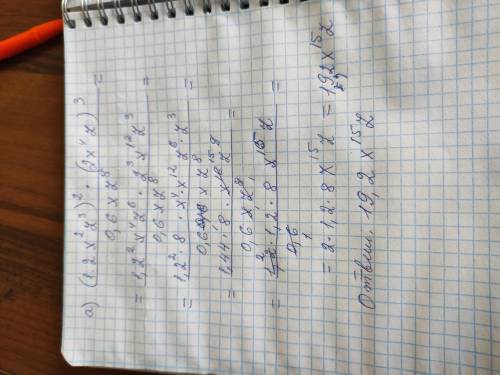 а) (1,2x²z³)² · (2x⁴z)³ =
0,6xz⁸
= 1,2² x⁴z⁶ · 2³ x¹²z³ =
0,6xz⁸
= 1,2² · 8 · x⁴ · x¹² z⁶ · z³ =
0,6 xz⁸
= 1,44 · 8 · x¹⁶ z⁹ =
0,6 xz⁸
= 1,2 · 1,2 · 8 x¹⁵ z =
0,6
= 2 · 1,2 · 8 x¹⁵ z = 19,2 x¹⁵ z
Ответ: 19,2 x¹⁵ z